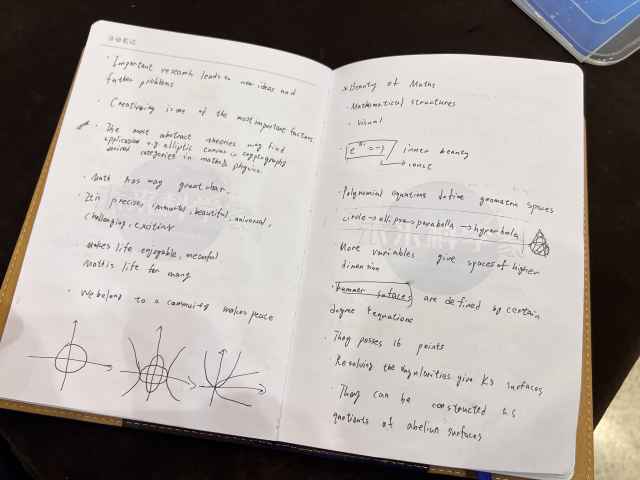 · Important research leads to new ideas and
further problems
· Creativity is one of the most important factors.
· The most abstract theories may find
application e.g. elliptic curves in cryptography
derived categories in math physics.
· Math has may great char.
· It is precise, immortal, beautiful, universal,
challenging, existing
· Makes life enjoyable,
Math is life for many
· We belong to a community makes peace
Beauty of Maths
· Mathematical structures
· Visual
inner beauty
· Polynomial equations define geometric spaces
circle → ellipse → parabola → hyperbola
More variables give spaces of higher
dimension
· Kummer sufaces are defined by certain
degree 4 equations
· They posses 16 points
· Resolving the singularities give K3 surfaces
· They can be constructed as
quotients of abelian surfaces